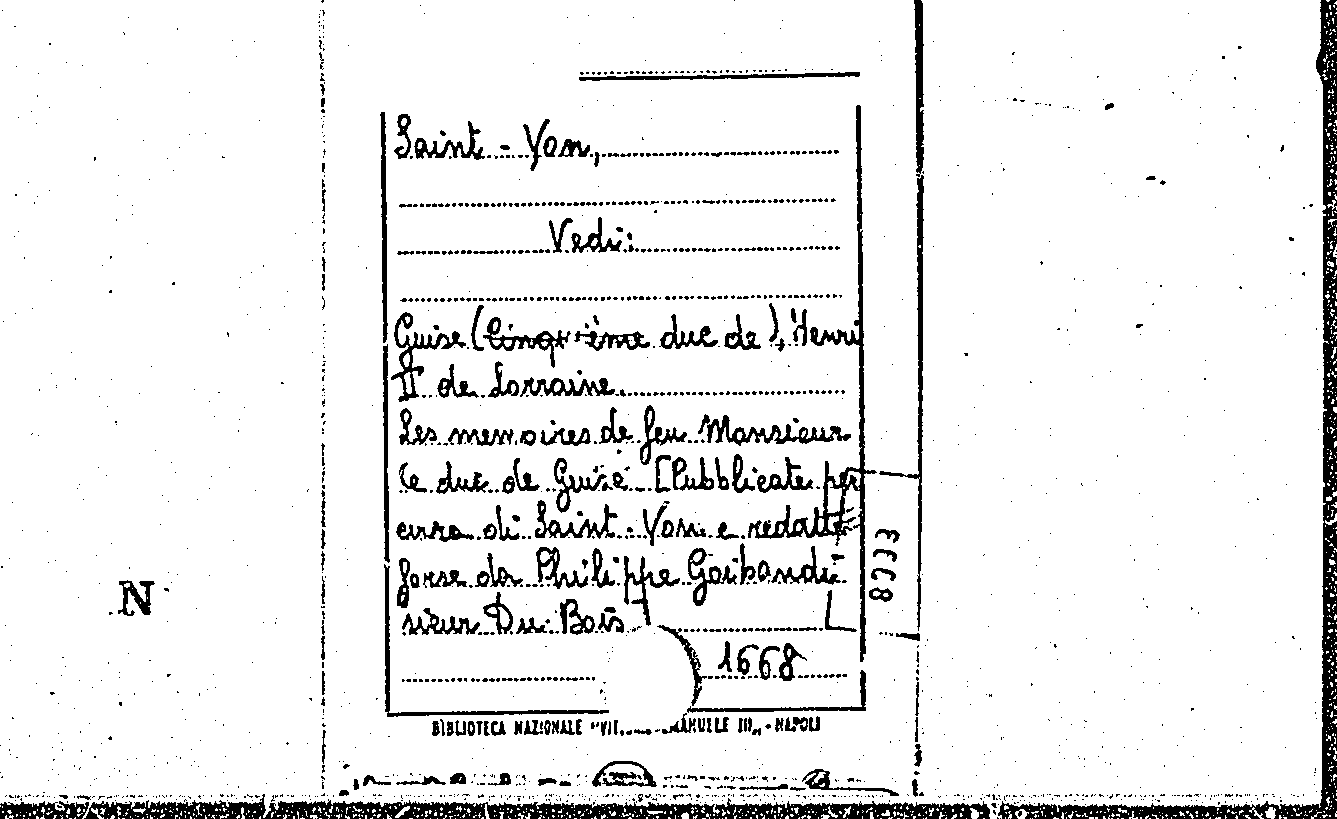 Saint-Yon,
Vedi:
Guise (Cinquième duc de), Henri
II de Lorraine.
Les memoires de feu Monsieur
le duc de Guise [Pubblicate per
cura di Saint-Yon e redatte
forse da Philippe Goibaud
sieur Du Bois]
1668
N
BIBLIOTECA NAZIONALE "VIT. EMANUELE III" - NAPOLI